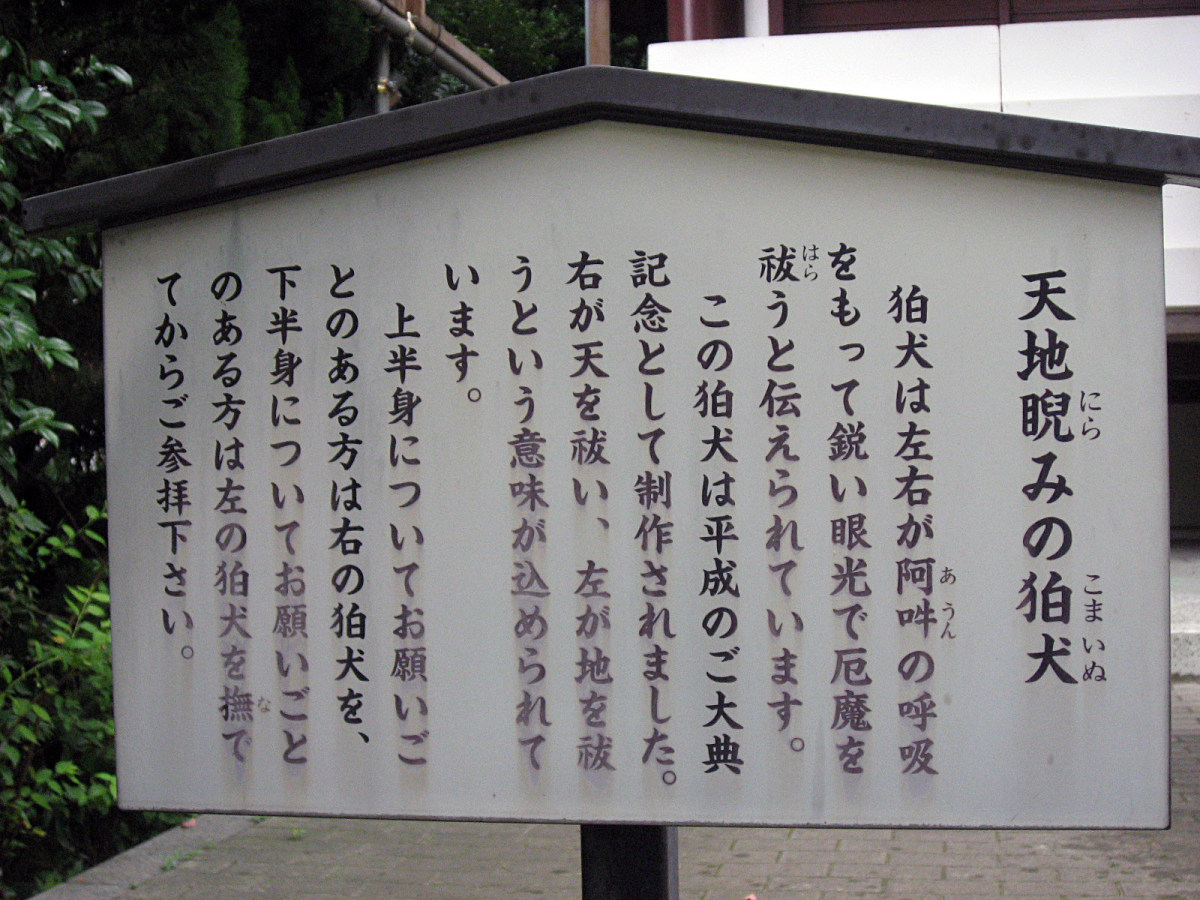 天地睨みの狛犬
にら
こまいぬ
狛犬は左右が阿吽の呼吸
あうん
をもって鋭い眼光で厄魔を
祓うと伝えられています。
はら
この狛犬は平成のご大典
記念として制作されました。
右が天を祓い、左が地を祓
うという意味が込められて
います。
上半身についてお願いご
とのある方は右の狛犬を、
下半身についてお願いごと
のある方は左の狛犬を撫で
な
てからご参拝下さい。